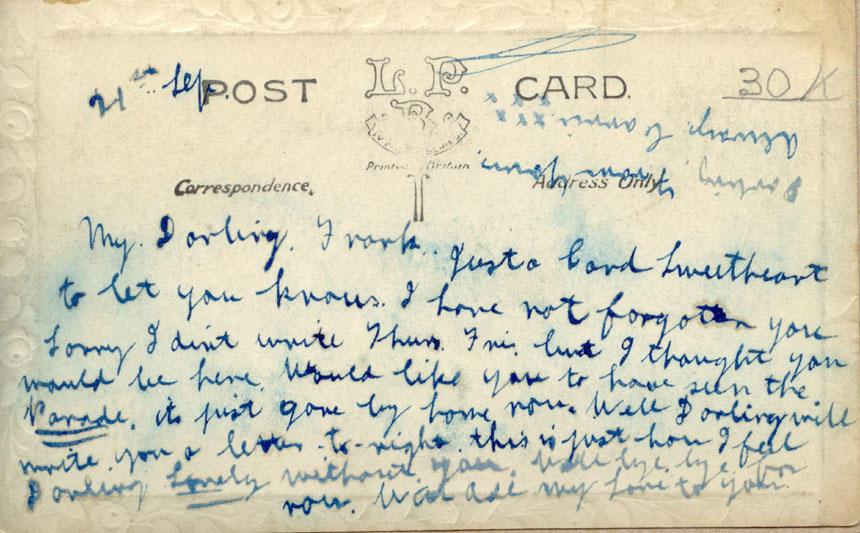 21st Sep.
POST CARD.
L. P.
30/K
Printed Britain
Correspondence.
Address Only
My Darling Frank. Just a Card Sweetheart
to let you know. I have not forgotten you
Sorry I din't write Thurs. Fri. but I thought you
would be here, Would like you to have seen the
Parade, its just gone by home now. Well Darling will
write you a letter to-night, this is just how I feel
Darling Lonely without you. Well bye bye for
now. With all my love to you.
from Your
x x x x x